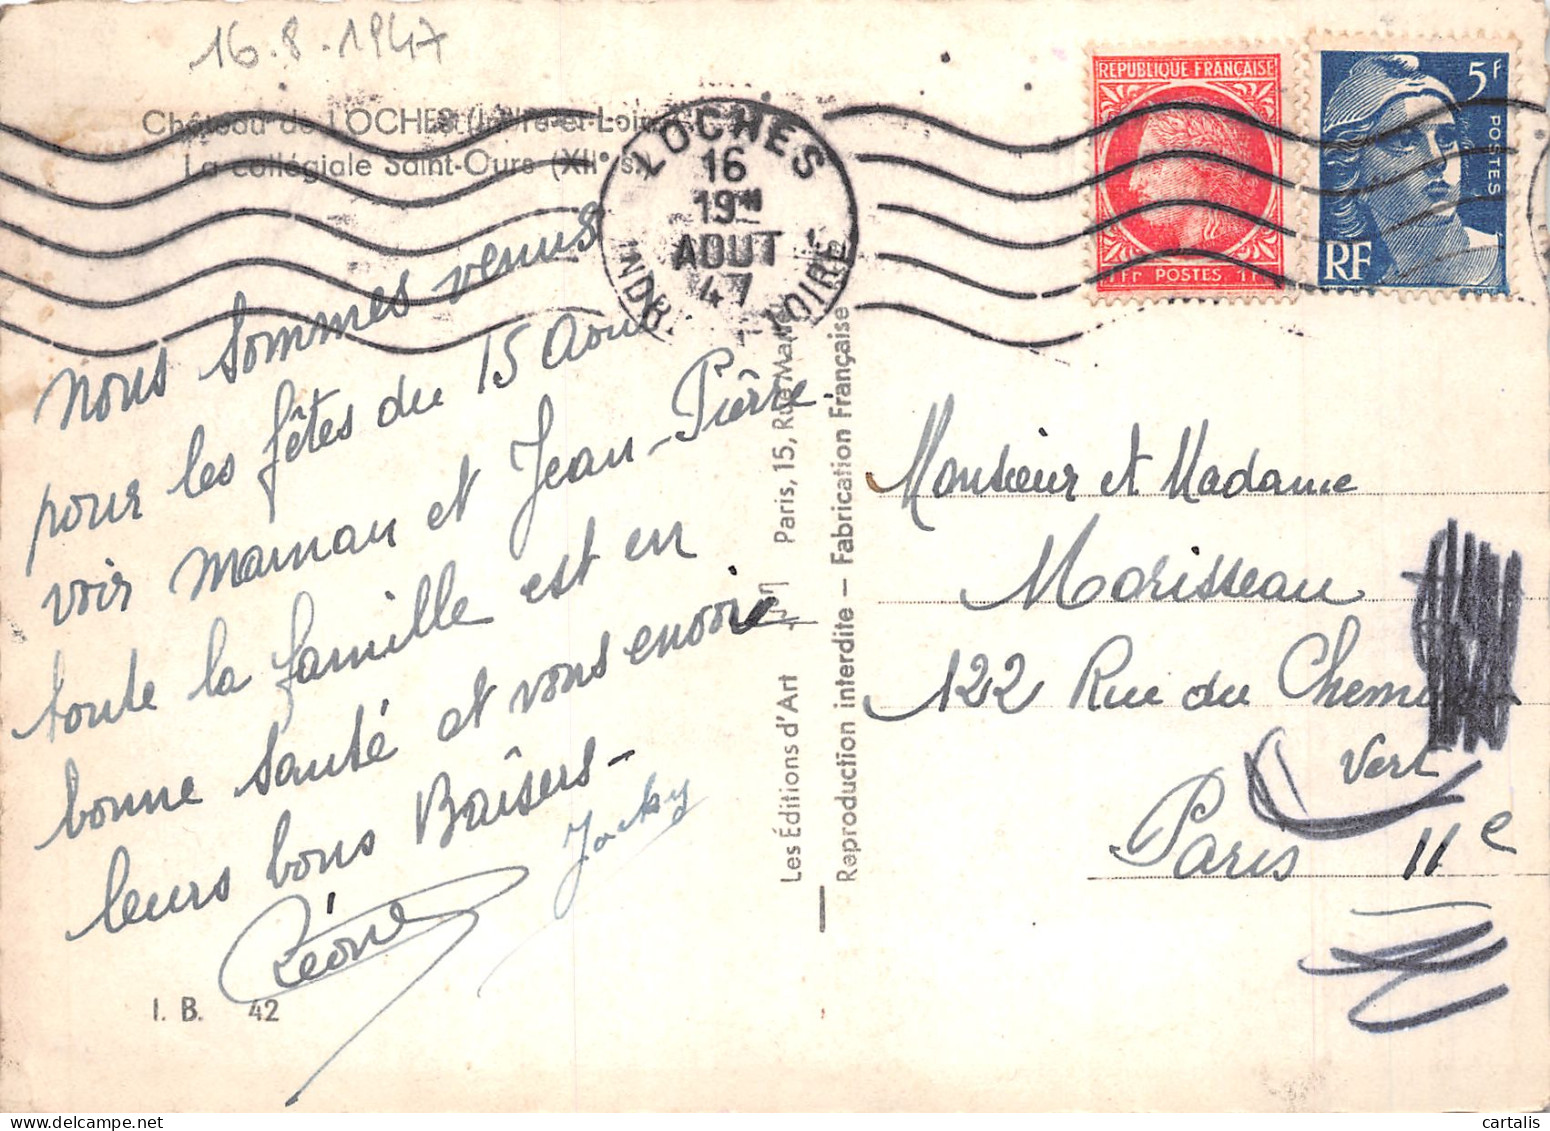 16.8.1947
Château de LOCHES (Indre-et-Loire)
La collégiale Saint-Ours (XIIe s.)
LOCHES
16
19H
AOUT
47
INDRE ET LOIRE
REPUBLIQUE FRANÇAISE
1Fr POSTES 1Fr
5F
POSTES
RF
nous sommes venus
pour les fêtes du 15 Aout
voir maman et Jean-Pièrre.
toute la famille est en
bonne santé et vous envoie
leurs bons Baisers-
Jacky
Léone
I. B. 42
Les Éditions d'Art Paris, 15, Rue
Reproduction interdite – Fabrication Française
Monsieur et Madame
Morisseau
122 Rue du Chemin
Vert
Paris 11e
cartalis